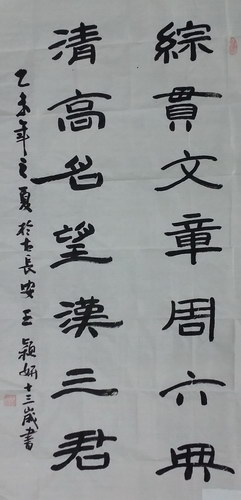 綜貫文章周六典
清高名望漢三君
乙未年之夏於古長安王穎妍十三歲書